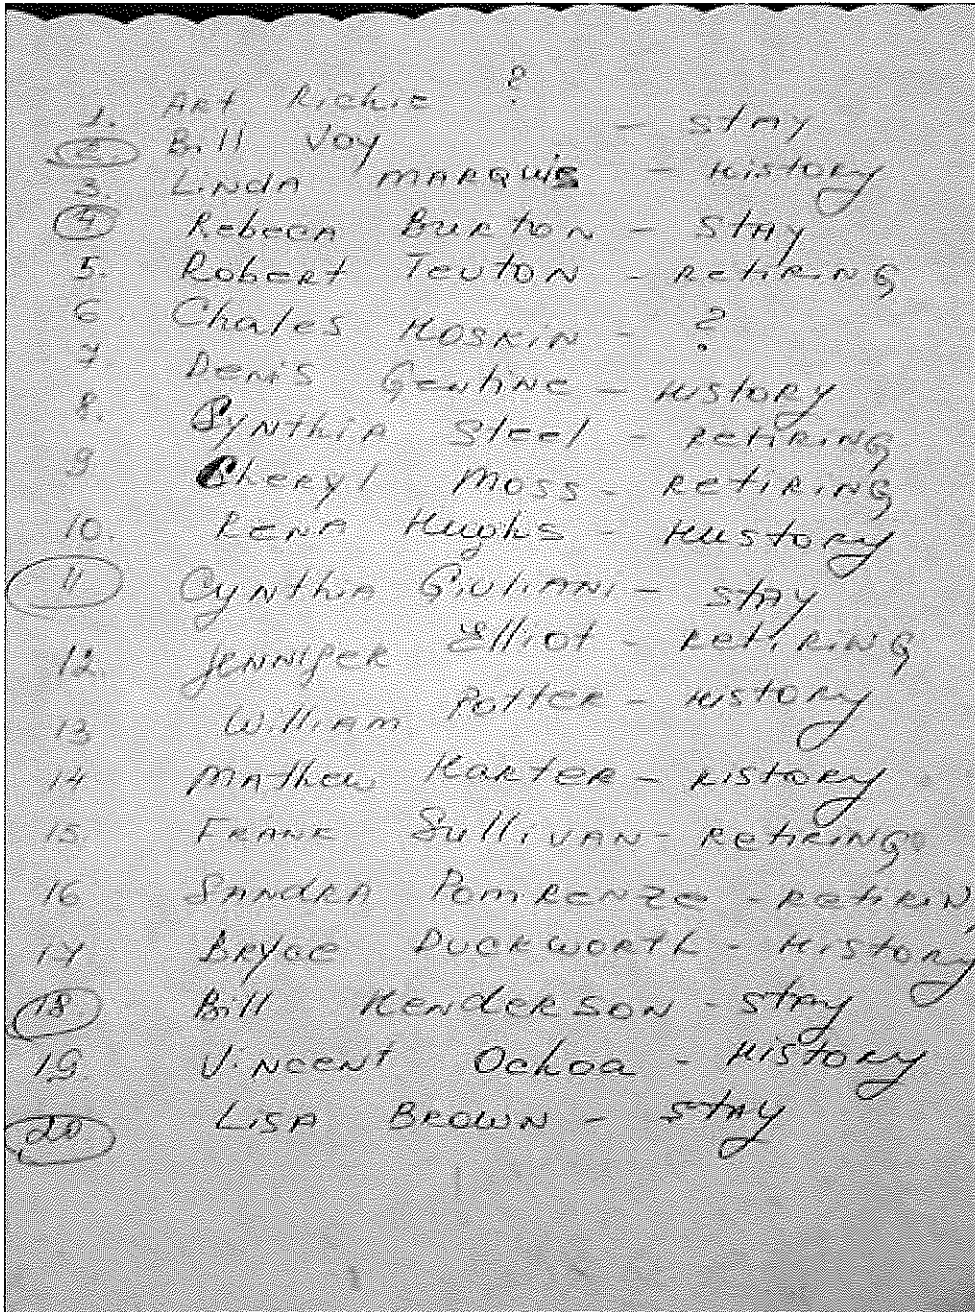 1. Art Richie ?
2 Bill Voy - STAY
3. LINDA MARQUIS - History
4 Rebeca BURTON - STAY
5. Robert TEUTON - RETIRING
6 Chales HOSKIN - ?
7 Denis Gentine - HISTORY
8. CYNTHIA Steel - RETIRING
9 Cheryl MOSS - RETIRING
10. RENA Hughs - HISTORY
11 CYNTHIA GIULIANI - STAY
12 JENNIFER Elliot - RETIRING
13 William POTTER - HISTORY
14 Mathew HARTER - HISTORY
15 FRANK Sullivan - RETIRING
16 SANDRA POMRENZE - RETIRIN
17 BRYCE DUCKWORTH - HISTORY
18 Bill HENDERSON - STAY
19 VINCENT Ochoa - HISTORY
20 LISA BROWN - STAY